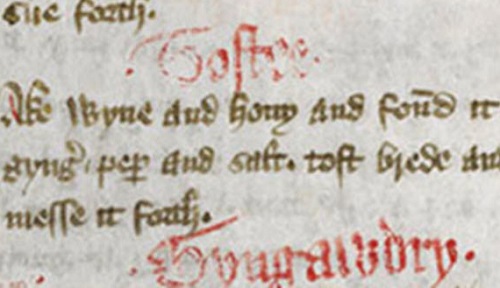 sue forth.
Tostee.
Ake wyne and hony and fond it
gyng' pep and salt. tost brede an
messe it forth.
Gyngawdry.